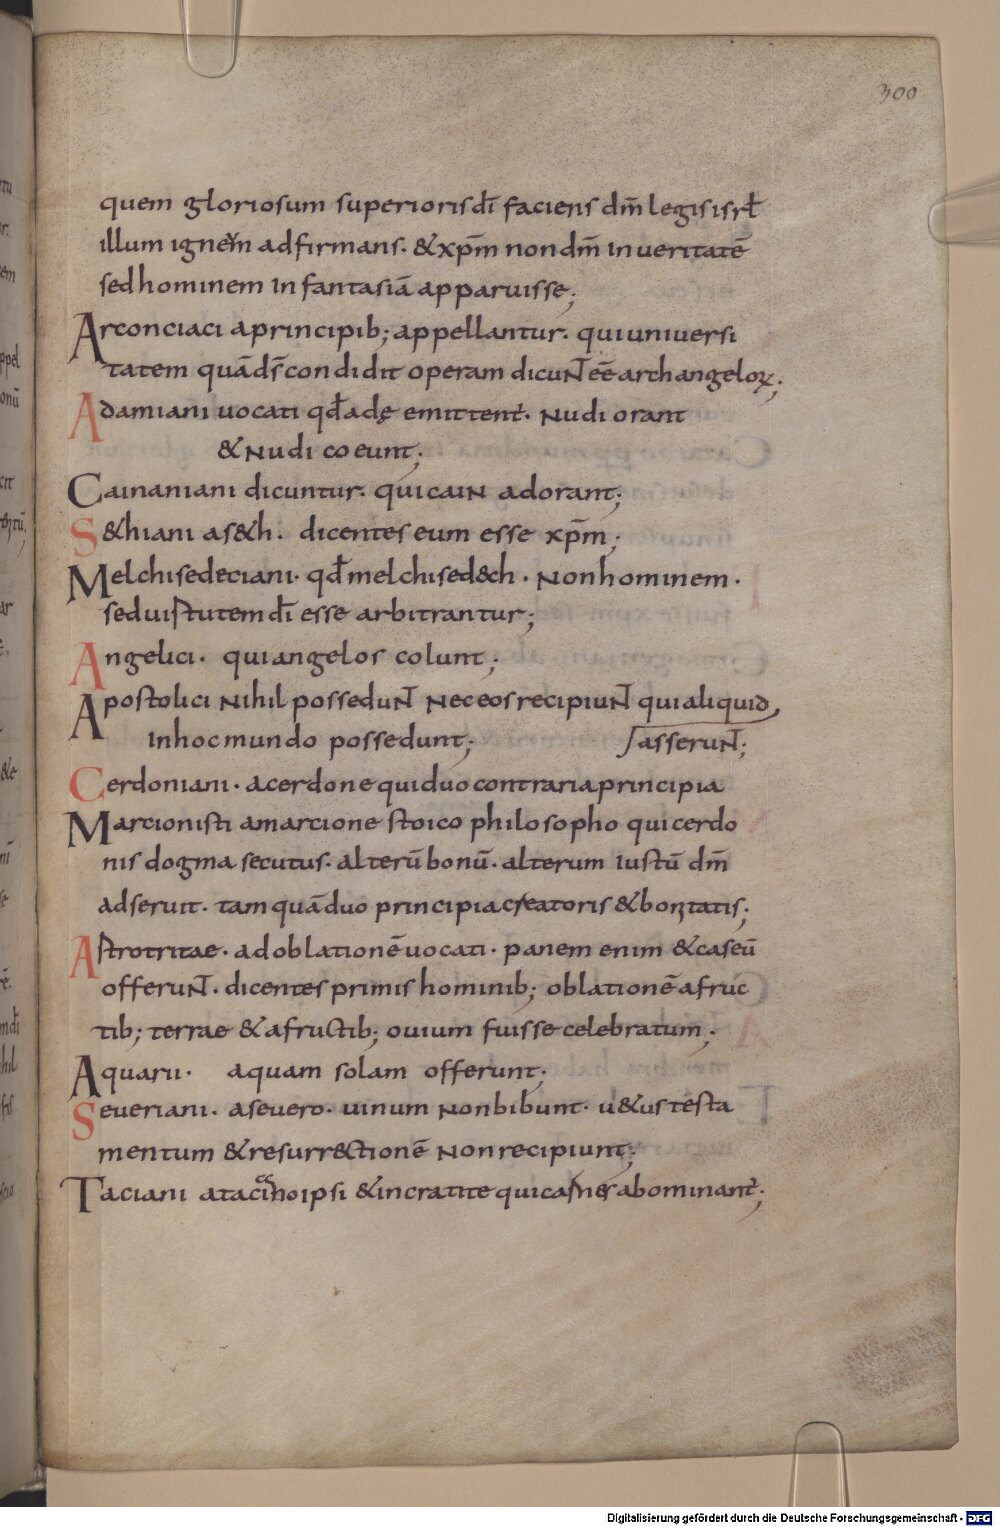 300
quem gloriosum superioris dī faciens dm̄ legis isrł
illum igneṁ adfirmans. &xp̄m non dm̄ in ueritatē
sed hominem in fantasiā apparuisse;
Arconciaci aprincipib; appellantur. qui uniuersi
tatem quā ds̄ condidit operam dicuÑ eē archangeloꝝ;
Adamiani uocati qđ adę emittent. Nudi orant
& Nudi coeunt;
Cainaniani dicuntur. qui caiN adorant;
S&hiani as&h. dicentes eum esse xp̄m;
Melchisedeciani. qđ melchised&ch. Non hominem.
sed uistutem dī esse arbitrantur;
Angelici. qui angelos colunt;
Apostolici Nihil posseduÑ Nec eos recipiuÑ qui aliquid
in hoc mundo possedunt; asseruÑ;
Cerdoniani. acerdone qui duo contraria principia
Marcionisti amarcione stoico philosopho qui cerdo
nis dogma secutus. alterū bonū. alterum iustū dm̄
adseruit. tam quā duo principia creatoris & bonitatis;
Astrotritae. ad oblationē uocati. panem enim & caseū
offeruÑ. dicentes primis hominib; oblationē afruc
tib; terrae & afructib; ouium fuisse celebratum;
Aquarii. aquam solam offerunt;
Seueriani. aseuero. uinum Non bibunt. u&us testa
mentum & resurr&ctionē Non recipiunt;
Taciani atacino ipsi & incratite qui carnes abominant;
Digitalisierung gefördert durch die Deutsche Forschungsgemeinschaft - DFG